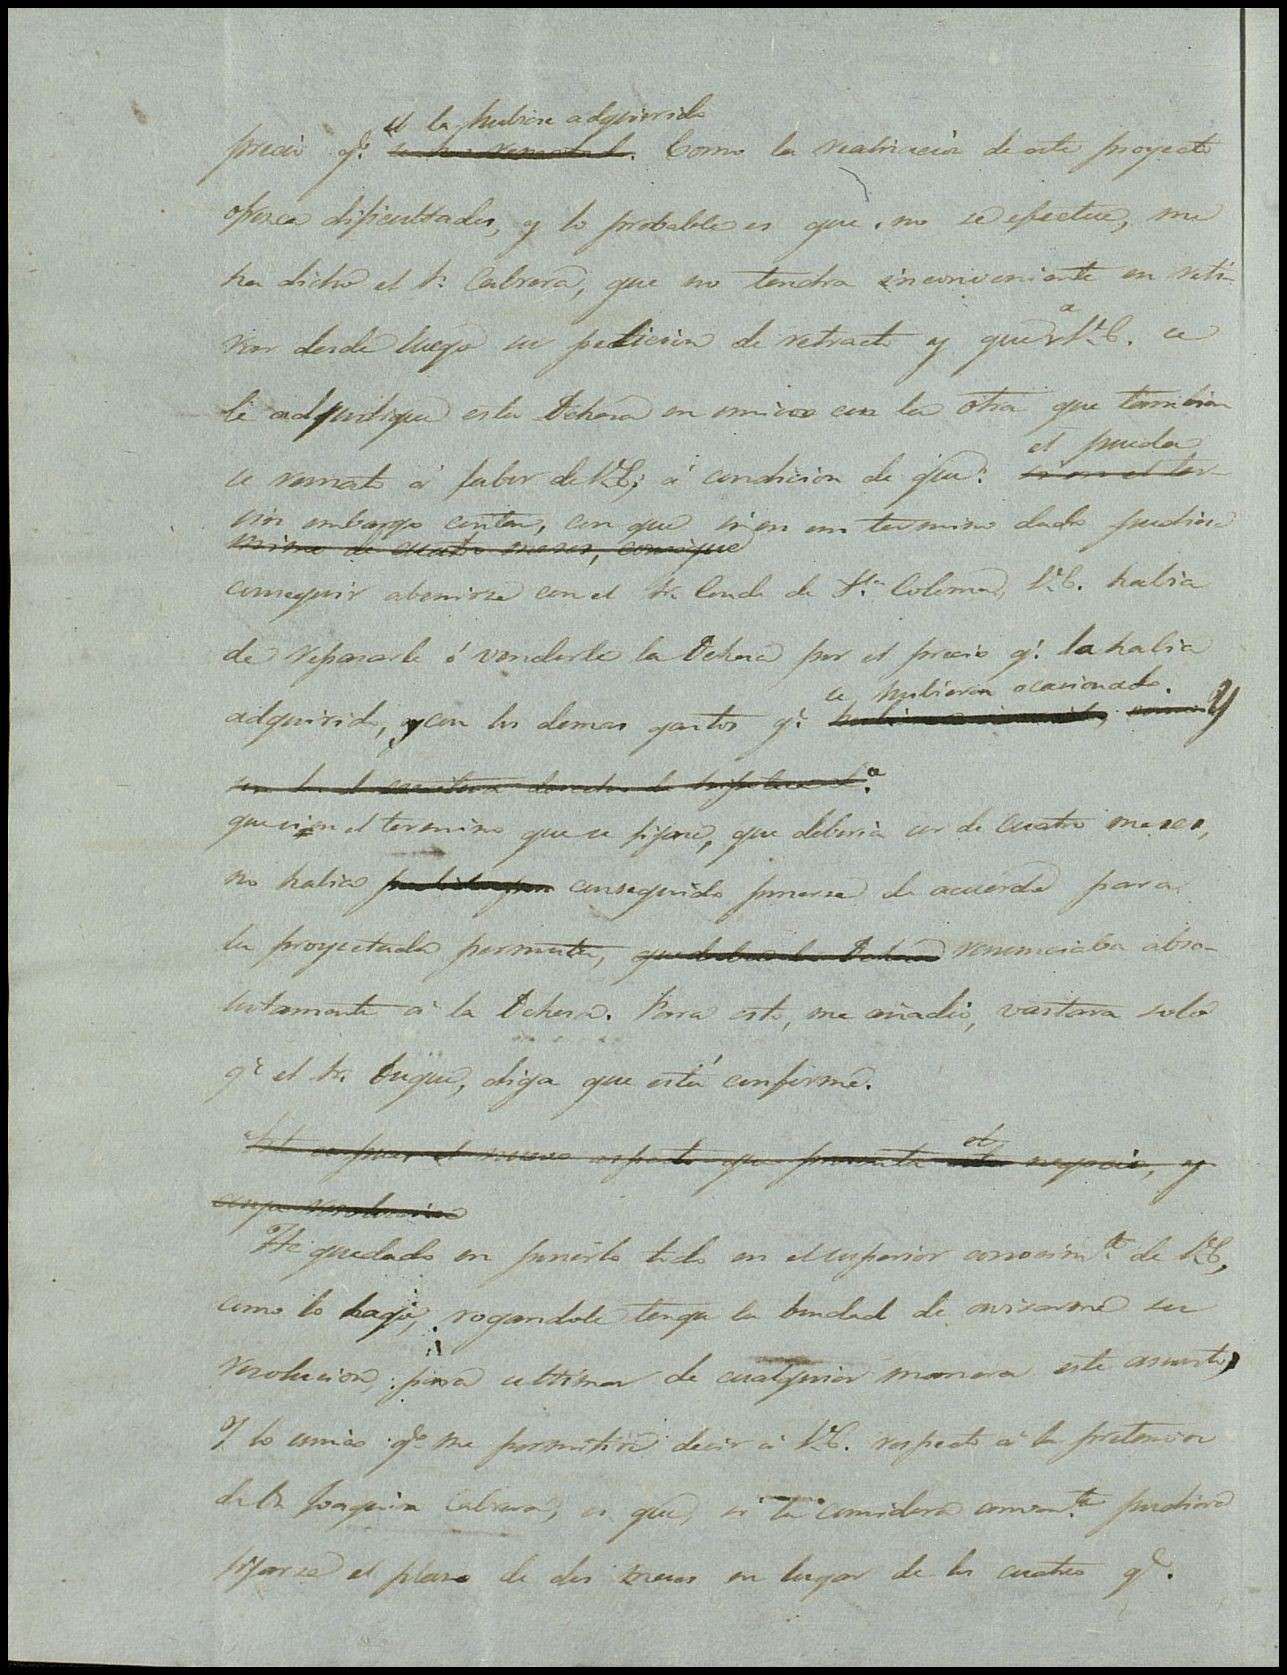 el la hubiere adquirido
precio q.e se ha rematado. Como la realizacion de este proyecto
ofrece dificultades, y lo probable es que no se efectue, me
ha dicho el Sr. Cabrera, que no tendra inconveniente en reti-
rar desde luego su peticion de retracto y que a V.E. se
le adjudique esta Dehesa en union con la otra que tambien
el pueda
se remató á fabor de V.E; á condicion de que: si en el ter-
sin embargo contar, con que si en un termino dado pudiese
mino de cuatro meses, consigue
conseguir abenirse con el Sr. Conde de Sta. Coloma, V.E. habia
de repasarle ó venderle la Dehesa por el precio q.e la habia
se hubieran ocasionado.
adquirido, y con los demas gastos q.e y
que si en el termino que se fijare, que deberia ser de cuatro meses,
no habia conseguido ponerse de acuerdo para
la proyectada permuta, renunciaba abso-
lutamente á la Dehesa. Para esto, me añadió, vastara solo
q.e el Sr. Duque, diga que está conforme.
el
Tal es pues el nuevo aspecto que presenta este negocio, y
cuya resolucion
He quedado en ponerlo todo en el superior conocim.to de V.E,
como lo hago, rogandole tenga la bondad de avisarme su
resolucion, para ultimar de cualquier manera este asunto,
Y lo unico q.e me permitiré decir á V.E. respecto á la pretension
de Dn. Joaquin Cabrera, es que, si la considera conven.te pudiera
fijarse el plazo de dos meses en lugar de los cuatro q.e